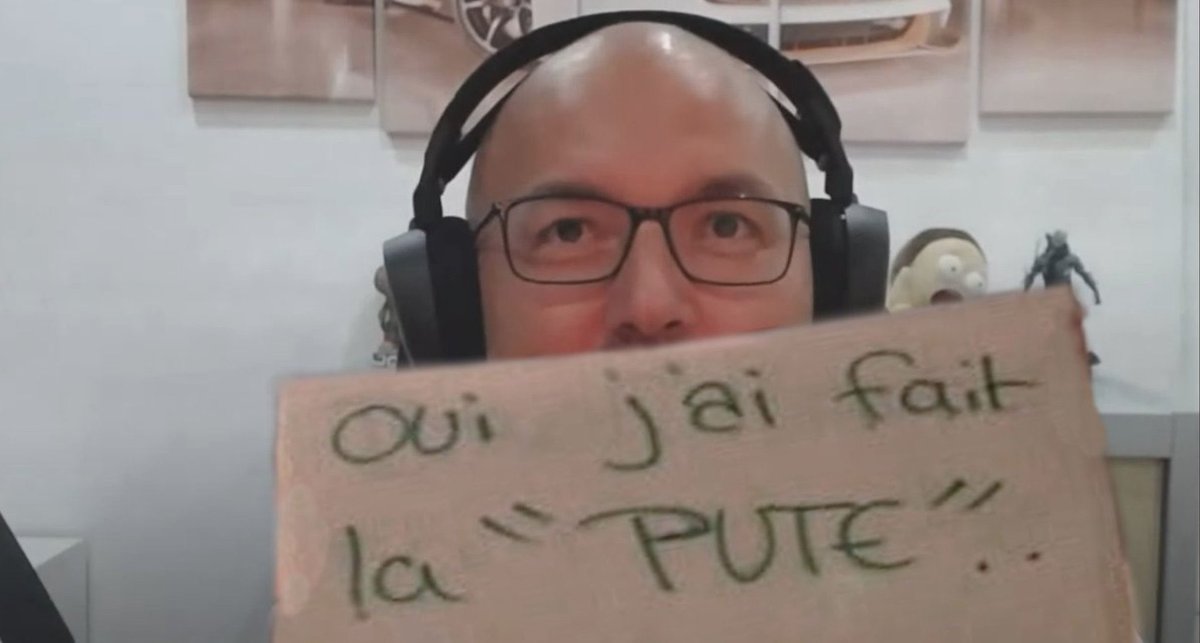 oui j'ai fait
la "PUTE"..